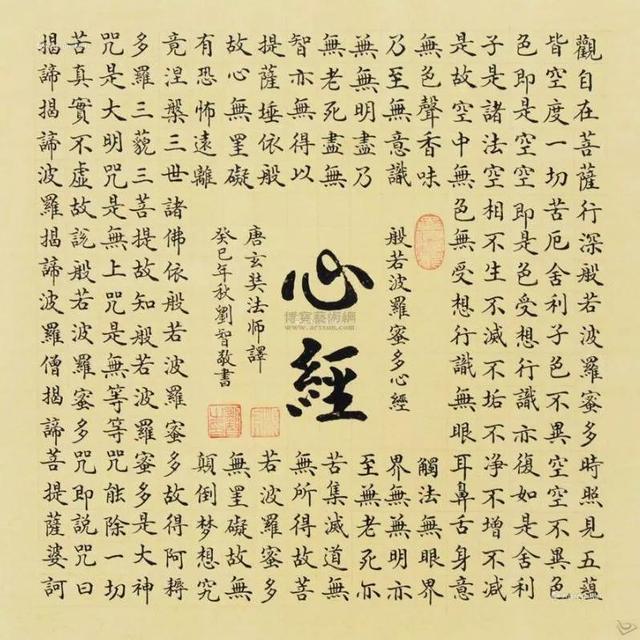 觀自在菩薩行深般若波羅蜜多時照見五蘊
皆空度一切苦厄舍利子色不異空空不異色
色即是空空即是色受想行識亦復如是舍利
子是諸法空相不生不滅不垢不净不增不减
是故空中無色無受想行識無眼耳鼻舌身意
無色聲香味
觸法無眼界
乃至無意識
界無無明亦
無無明盡乃
至無老死亦
無老死盡無
苦集滅道無
智亦無得以
無所得故菩
提薩埵依般
若波羅蜜多
故心無罣礙
無罣礙故無
有恐怖遠離
顛倒梦想究
竟涅槃三世諸佛依般若波羅蜜多故得阿耨
多羅三藐三菩提故知般若波羅蜜多是大神
咒是大明咒是無上咒是無等等咒能除一切
苦真實不虛故說般若波羅蜜多咒即說咒曰
揭諦揭諦波羅揭諦波羅僧揭諦菩提薩婆訶
般若波羅蜜多心經
心經
唐玄奘法師譯
癸巳年秋劉智敬書
博寶藝術網
www.artxun.com